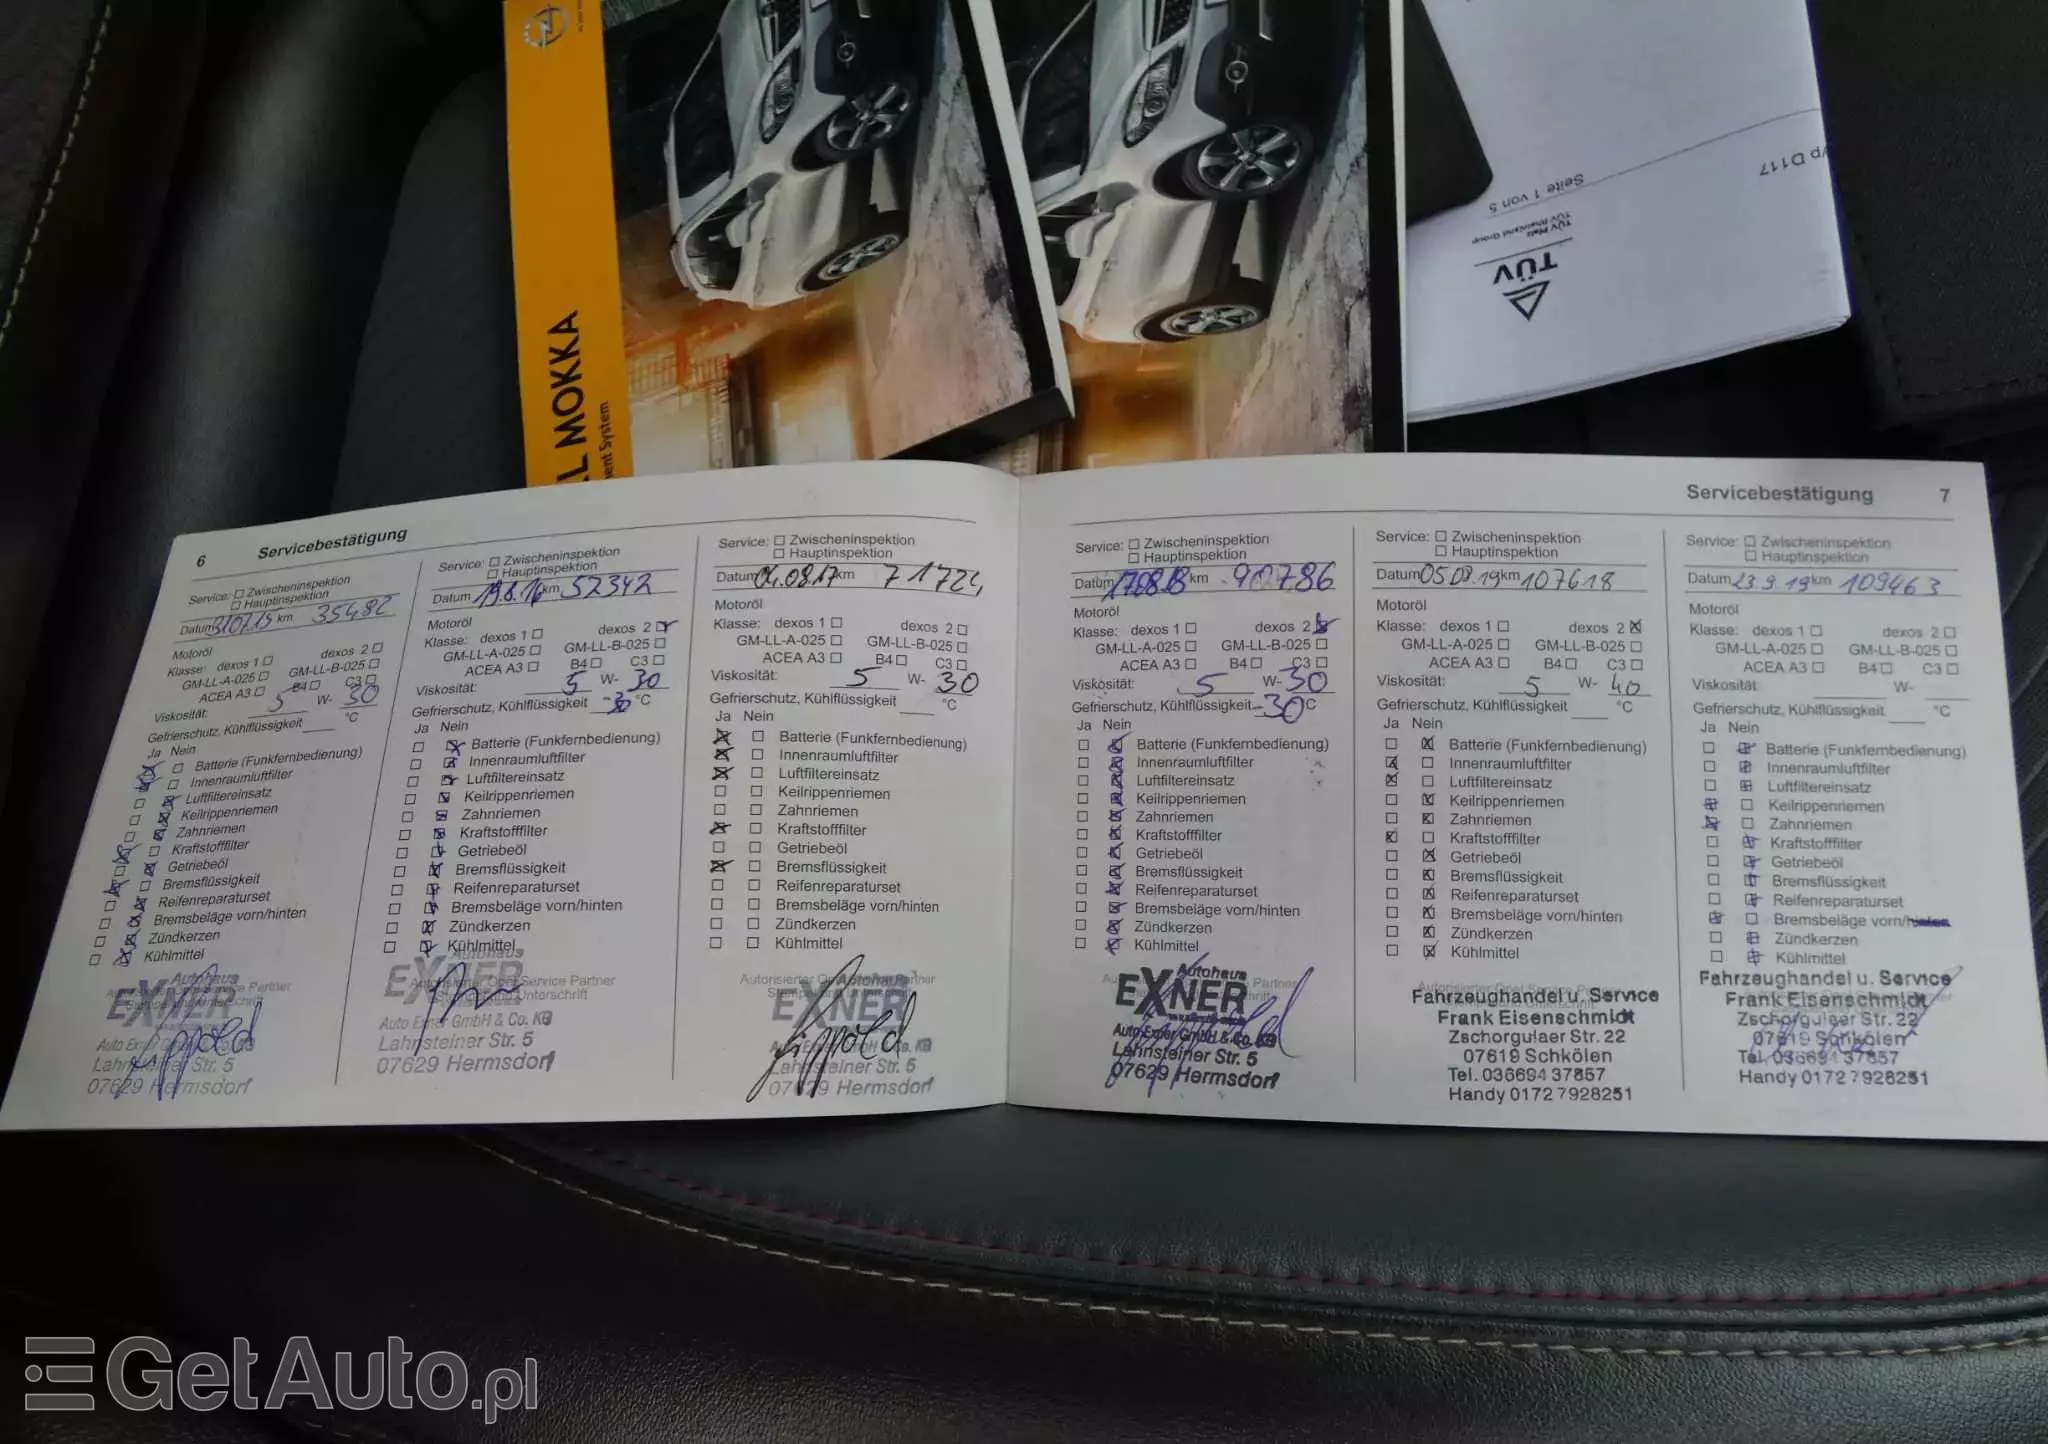 L MOKKA
ment System
yp D117
Seite 1 von 5
TÜV Pfalz
TÜV Rheinland Group
TÜV
6 Servicebestätigung
Service: Zwischeninspektion
Hauptinspektion
Datum 31.07.15 km 35482
Motoröl
Klasse: dexos 1 dexos 2
GM-LL-A-025 GM-LL-B-025
ACEA A3 B4 C3
Viskosität: 5 W- 30
Gefrierschutz, Kühlflüssigkeit °C
Ja Nein
Batterie (Funkfernbedienung)
Innenraumluftfilter
Luftfiltereinsatz
Keilrippenriemen
Zahnriemen
Kraftstofffilter
Getriebeöl
Bremsflüssigkeit
Reifenreparaturset
Bremsbeläge vorn/hinten
Zündkerzen
Kühlmittel
Autohaus
EXNER
Auto Exner GmbH & Co. KG
Lahnsteiner Str. 5
07629 Hermsdorf
Service: Zwischeninspektion
Hauptinspektion
Datum 19.8.16 km 52342
Motoröl
Klasse: dexos 1 dexos 2
GM-LL-A-025 GM-LL-B-025
ACEA A3 B4 C3
Viskosität: 5 W- 30
Gefrierschutz, Kühlflüssigkeit -30 °C
Ja Nein
Batterie (Funkfernbedienung)
Innenraumluftfilter
Luftfiltereinsatz
Keilrippenriemen
Zahnriemen
Kraftstofffilter
Getriebeöl
Bremsflüssigkeit
Reifenreparaturset
Bremsbeläge vorn/hinten
Zündkerzen
Kühlmittel
Autohaus
EXNER
Auto Exner GmbH & Co. KG
Lahnsteiner Str. 5
07629 Hermsdorf
Service: Zwischeninspektion
Hauptinspektion
Datum 04.08.17 km 71724
Motoröl
Klasse: dexos 1 dexos 2
GM-LL-A-025 GM-LL-B-025
ACEA A3 B4 C3
Viskosität: 5 W- 30
Gefrierschutz, Kühlflüssigkeit °C
Ja Nein
Batterie (Funkfernbedienung)
Innenraumluftfilter
Luftfiltereinsatz
Keilrippenriemen
Zahnriemen
Kraftstofffilter
Getriebeöl
Bremsflüssigkeit
Reifenreparaturset
Bremsbeläge vorn/hinten
Zündkerzen
Kühlmittel
EXNER
Lahnsteiner Str. 5
07629 Hermsdorf
Servicebestätigung 7
Service: Zwischeninspektion
Hauptinspektion
Datum 17.08.18 km 90786
Motoröl
Klasse: dexos 1 dexos 2
GM-LL-A-025 GM-LL-B-025
ACEA A3 B4 C3
Viskosität: 5 W- 30
Gefrierschutz, Kühlflüssigkeit -30 °C
Ja Nein
Batterie (Funkfernbedienung)
Innenraumluftfilter
Luftfiltereinsatz
Keilrippenriemen
Zahnriemen
Kraftstofffilter
Getriebeöl
Bremsflüssigkeit
Reifenreparaturset
Bremsbeläge vorn/hinten
Zündkerzen
Kühlmittel
Autohaus
EXNER
Auto Exner GmbH & Co. KG
Lahnsteiner Str. 5
07629 Hermsdorf
Service: Zwischeninspektion
Hauptinspektion
Datum 05.09.19 km 107618
Motoröl
Klasse: dexos 1 dexos 2
GM-LL-A-025 GM-LL-B-025
ACEA A3 B4 C3
Viskosität: 5 W- 40
Gefrierschutz, Kühlflüssigkeit °C
Ja Nein
Batterie (Funkfernbedienung)
Innenraumluftfilter
Luftfiltereinsatz
Keilrippenriemen
Zahnriemen
Kraftstofffilter
Getriebeöl
Bremsflüssigkeit
Reifenreparaturset
Bremsbeläge vorn/hinten
Zündkerzen
Kühlmittel
Fahrzeughandel u. Service
Frank Eisenschmidt
Zschorgulaer Str. 22
07619 Schkölen
Tel. 036694 37857
Handy 0172 7928251
Service: Zwischeninspektion
Hauptinspektion
Datum 23.9.19 km 109463
Motoröl
Klasse: dexos 1 dexos 2
GM-LL-A-025 GM-LL-B-025
ACEA A3 B4 C3
Viskosität: W-
Gefrierschutz, Kühlflüssigkeit °C
Ja Nein
Batterie (Funkfernbedienung)
Innenraumluftfilter
Luftfiltereinsatz
Keilrippenriemen
Zahnriemen
Kraftstofffilter
Getriebeöl
Bremsflüssigkeit
Reifenreparaturset
Bremsbeläge vorn/hinten
Zündkerzen
Kühlmittel
Fahrzeughandel u. Service
Frank Eisenschmidt
Zschorgulaer Str. 22
07619 Schkölen
Tel. 036694 37857
Handy 0172 7928251
GetAuto.pl